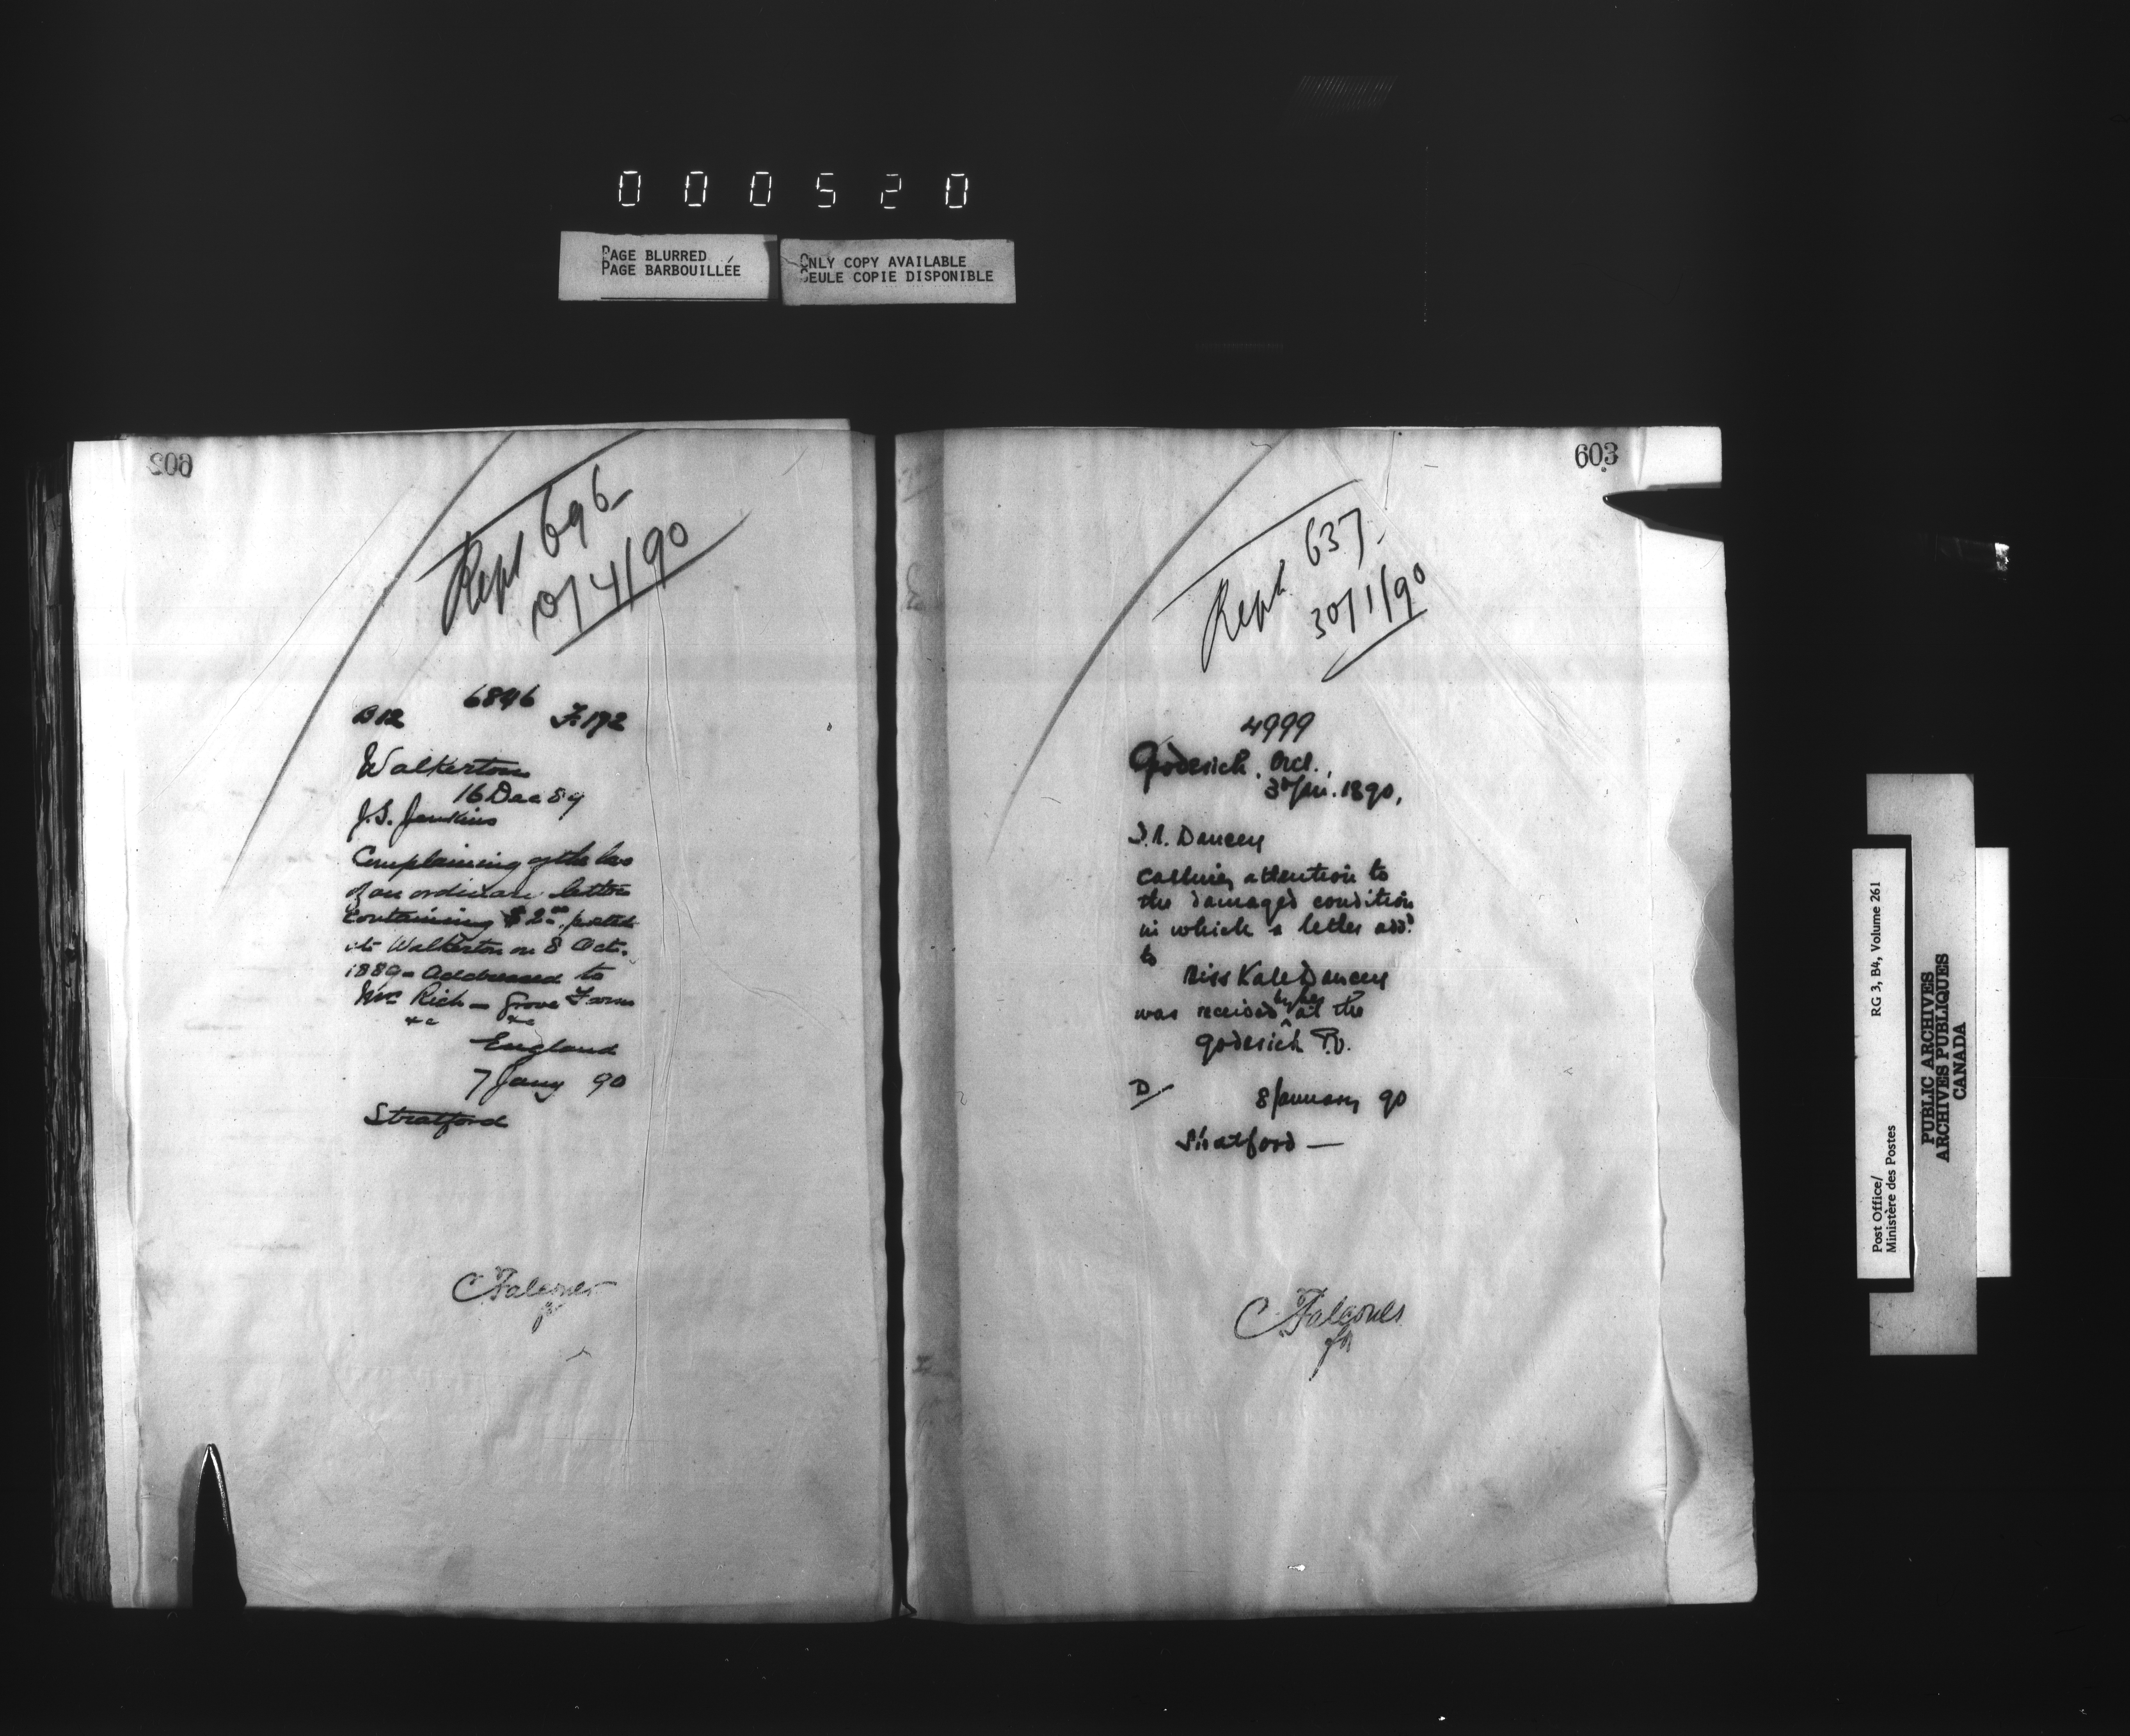 000520
PAGE BLURRED
PAGE BARBOUILLÉE
ONLY COPY AVAILABLE
SEULE COPIE DISPONIBLE
602
Rept 696
10/4/90
6846
B12 F.192
Walkerton
16 Dec 89
J.S. Jenkins
Complaining of the loss
of an ordinary letter
containing $2.00 posted
at Walkerton on 8 Oct.
1889 - Addressed to
Mrs Rich - Grove Farm
&c &c
England
7 Jany 90
Stratford
C Falconer
for
603
Rept 637
30/1/90
4999
Goderich, Ont.,
3rd Jan. 1890,
Dancey
Calling attention to
the damaged condition
in which a letter add.d
to
Miss Kate Dancey
was received by her at the
Goderich P.O.
D/ 8 January 90
Stratford —
C Falconer
for
Post Office/
Ministère des Postes
RG 3, B4, Volume 261
PUBLIC ARCHIVES
ARCHIVES PUBLIQUES
CANADA